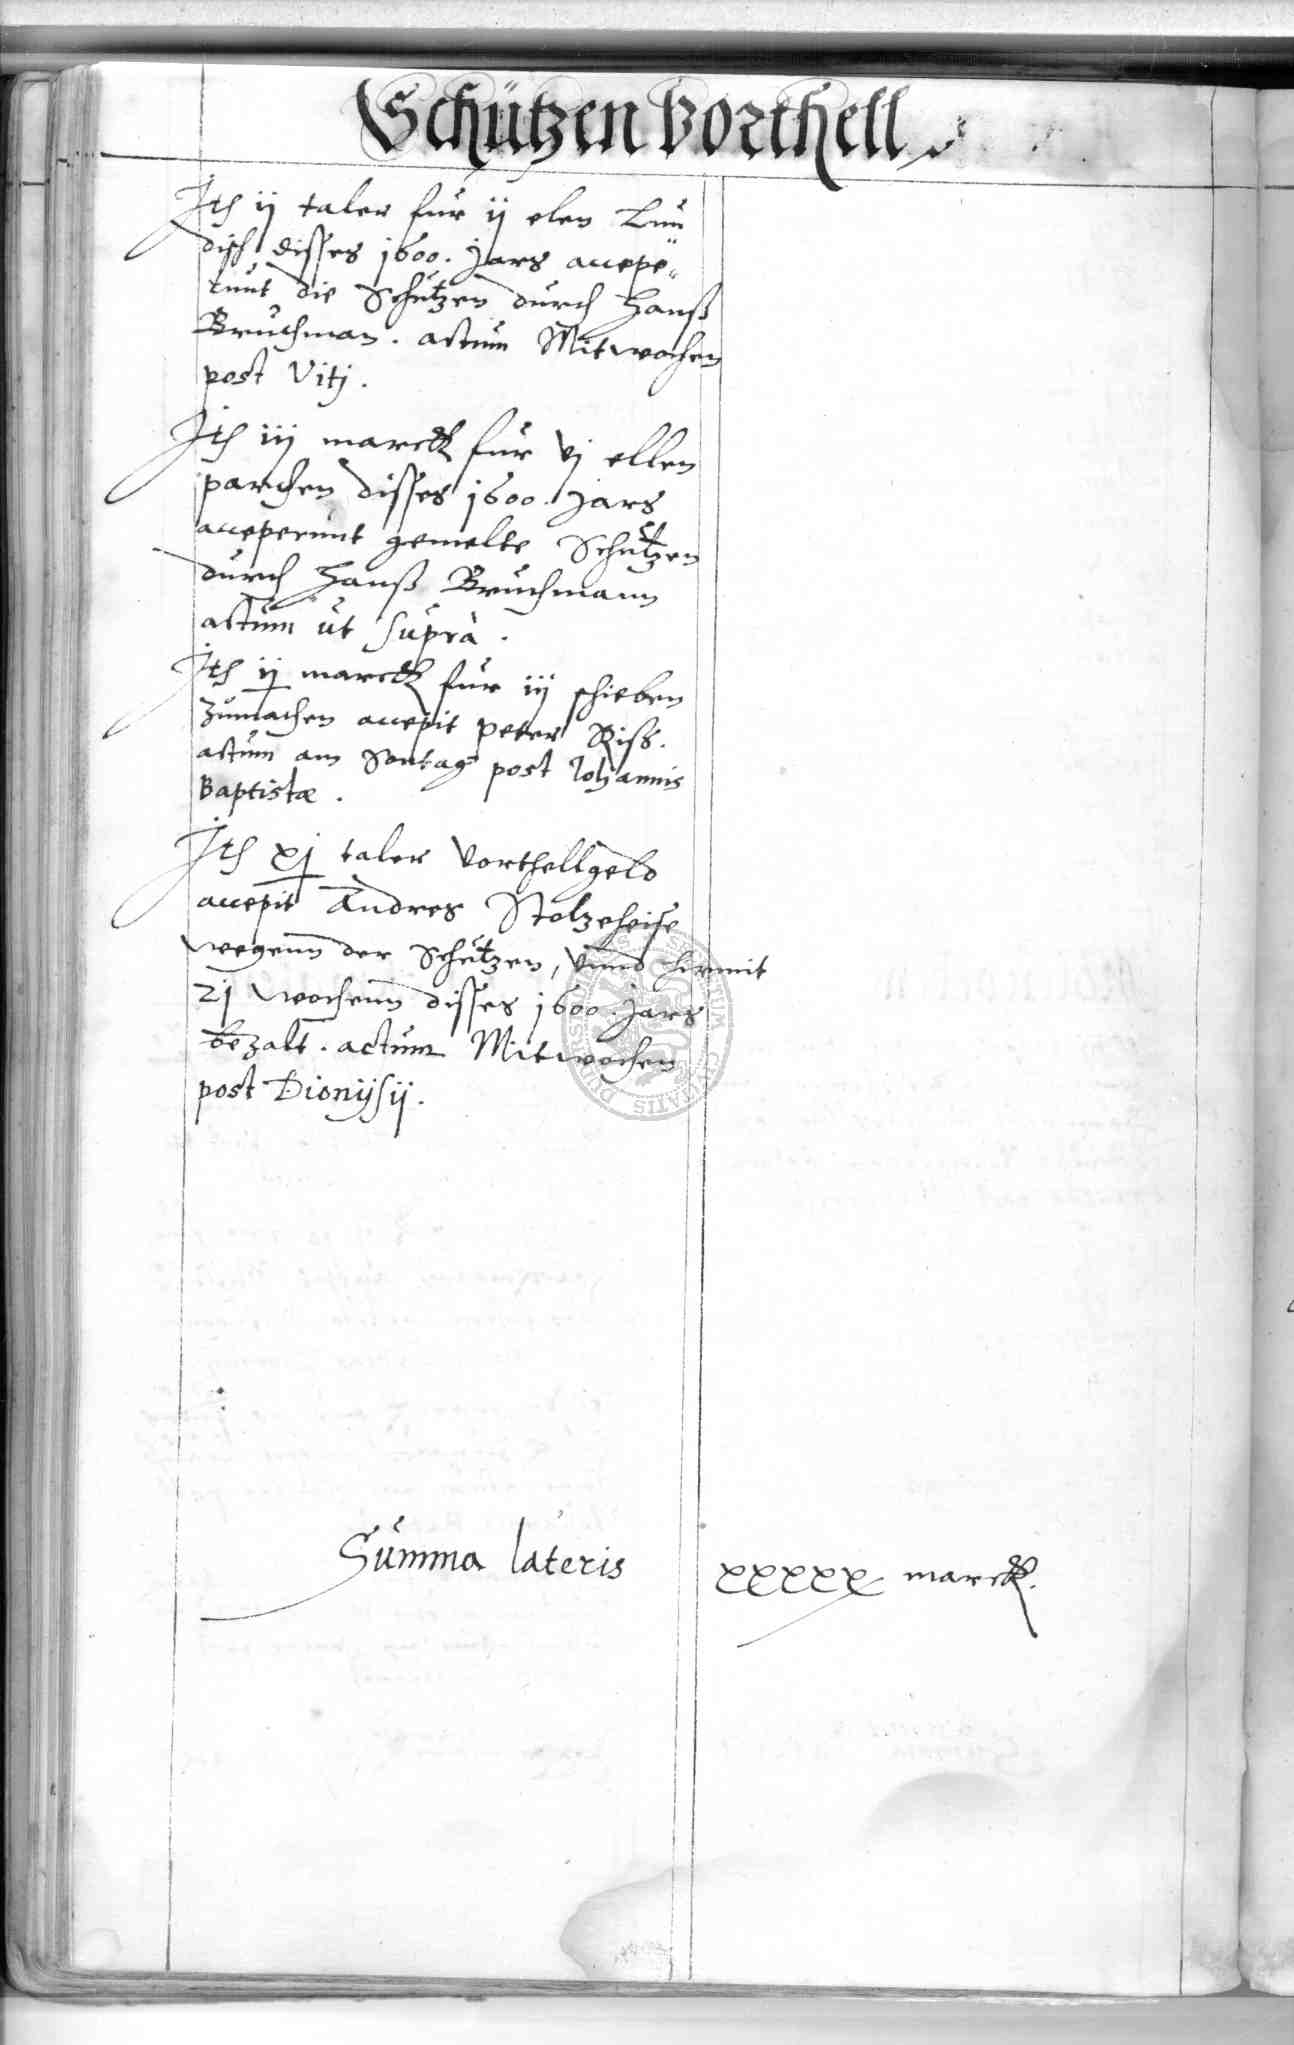 Schützen Vorthell
Jtē ij taler für ij elen Lun
disch disses 1600. Jars accepe„
runt die Schützen durch Hanß
Bruchman. actum Mitwochen
post Vitj.
Jtē iij marck für vj ellen
parchen disses 1600. Jars
acceperunt gemelte Schützen
durch Hanß Bruchmann
actum ut suprà.
Jtē ij marck für iij schieben
zumachen accepit peter Riss.
actum am Sontag post Iohannis
Baptistæ.
Jtē xj taler Vorthellgeld
accepit Andres Stolzeheise
wegenn der Schützen, vnnd hirmit
21 wochenn disses 1600. Jars
bezalt. actum Mitwochen
post Dionijsij.
Summa lateris xxxxx marck.